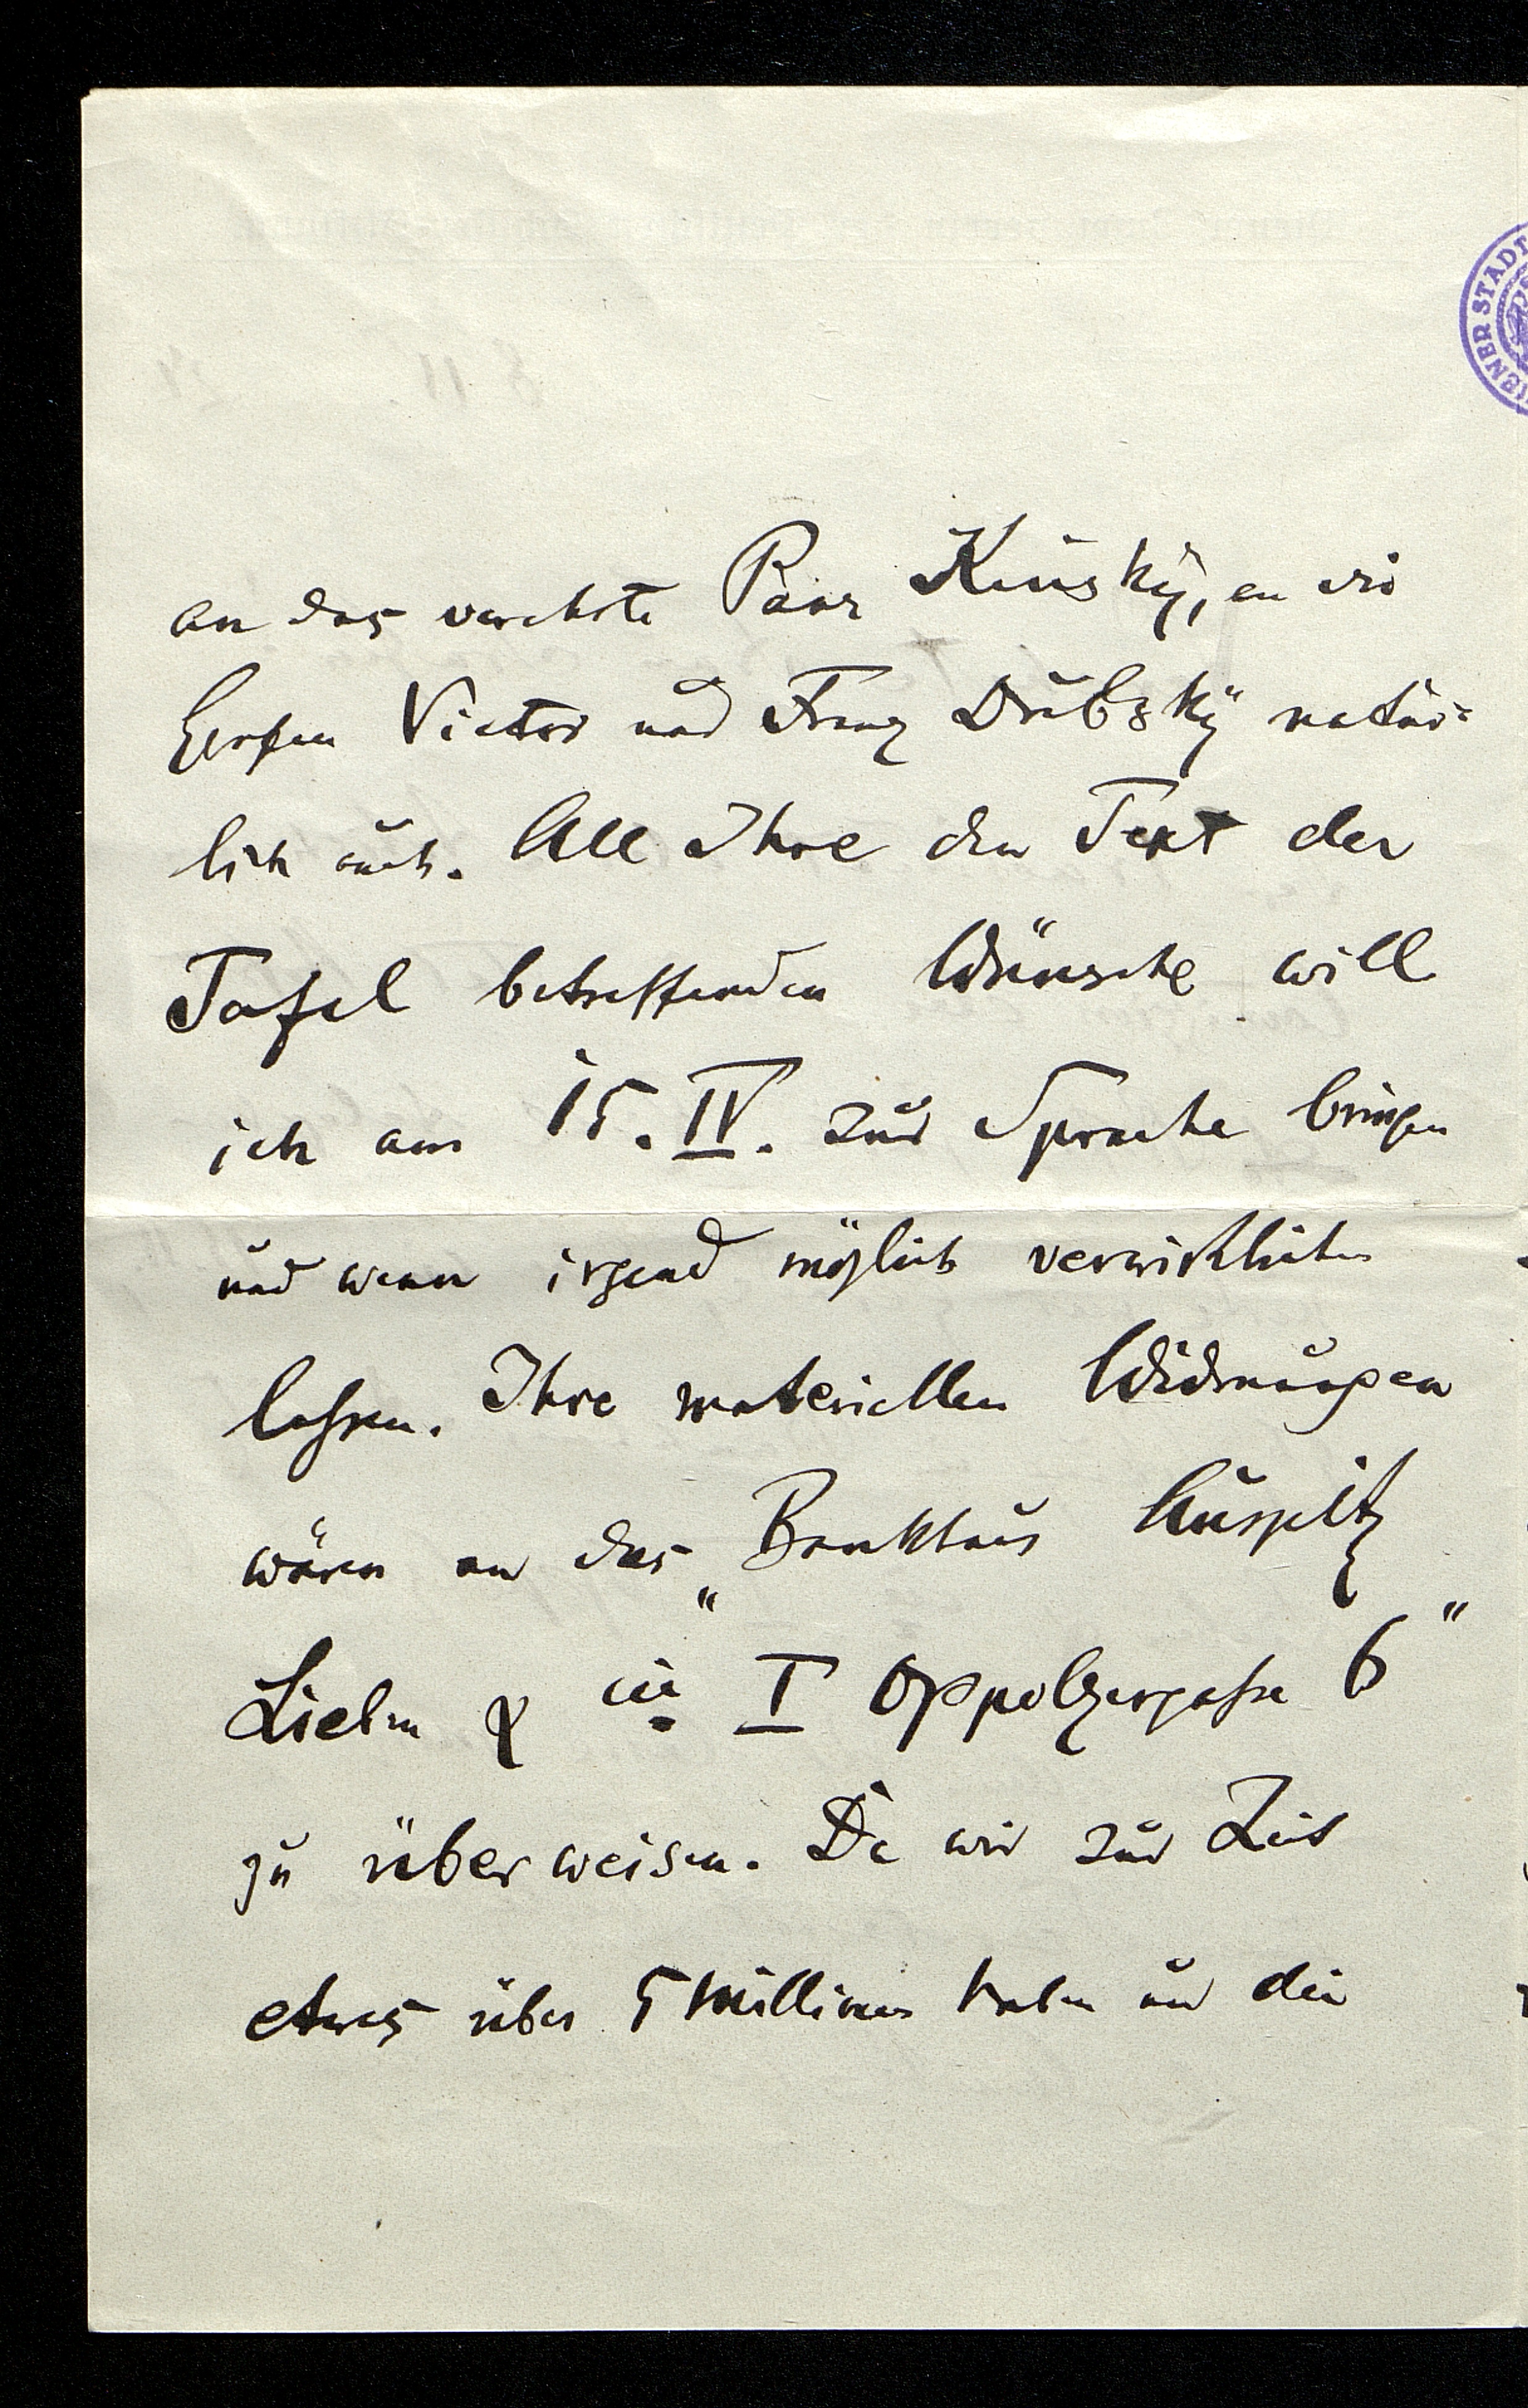 an das verehrte Paar Kinsky, an die
Grafen Victor und Franz Dubsky natür=
lich auch. All Ihre den Text der
Tafel betreffenden Wünsche will
ich am 15. IV. zur Sprache bringen
und wenn irgend möglich verwirklichen
lassen. Ihre materiellen Widmungen
wären an das „Bankhaus Auspitz
Lieben & Cie I Oppolzergasse 6"
zu überweisen. Da wir zur Zeit
etwas über 5 Millionen haben und die
WIENER STADT